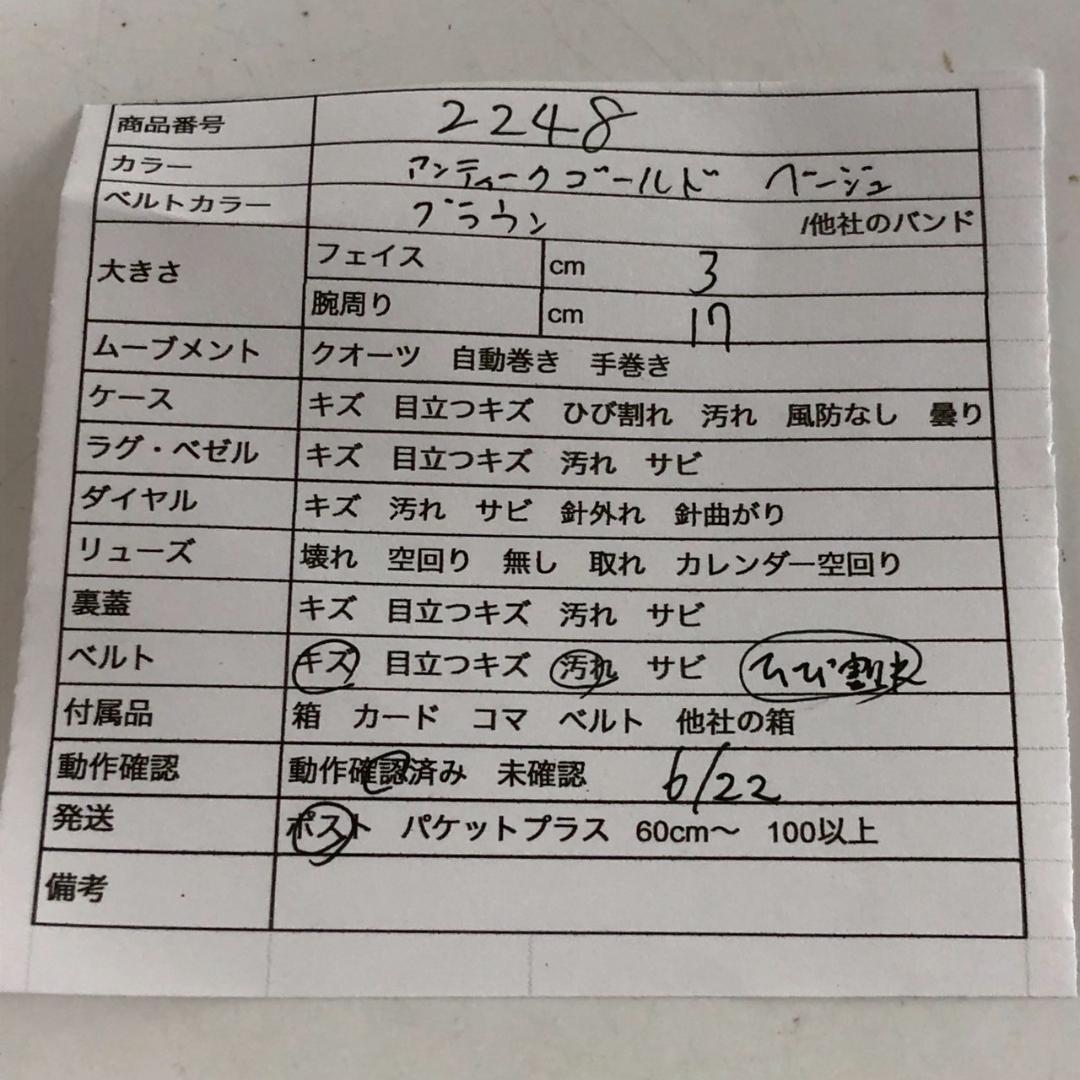 商品番号 2248
カラー アンティークゴールド ベージュ
ベルトカラー ブラウン /他社のバンド
大きさ フェイス cm 3
腕周り cm 17
ムーブメント クオーツ 自動巻き 手巻き
ケース キズ 目立つキズ ひび割れ 汚れ 風防なし 曇り
ラグ・ベゼル キズ 目立つキズ 汚れ サビ
ダイヤル キズ 汚れ サビ 針外れ 針曲がり
リューズ 壊れ 空回り 無し 取れ カレンダー空回り
裏蓋 キズ 目立つキズ 汚れ サビ
ベルト キズ 目立つキズ 汚れ サビ ひび割れ
付属品 箱 カード コマ ベルト 他社の箱
動作確認 動作確認済み 未確認 6/22
発送 ポスト パケットプラス 60cm〜 100以上
備考